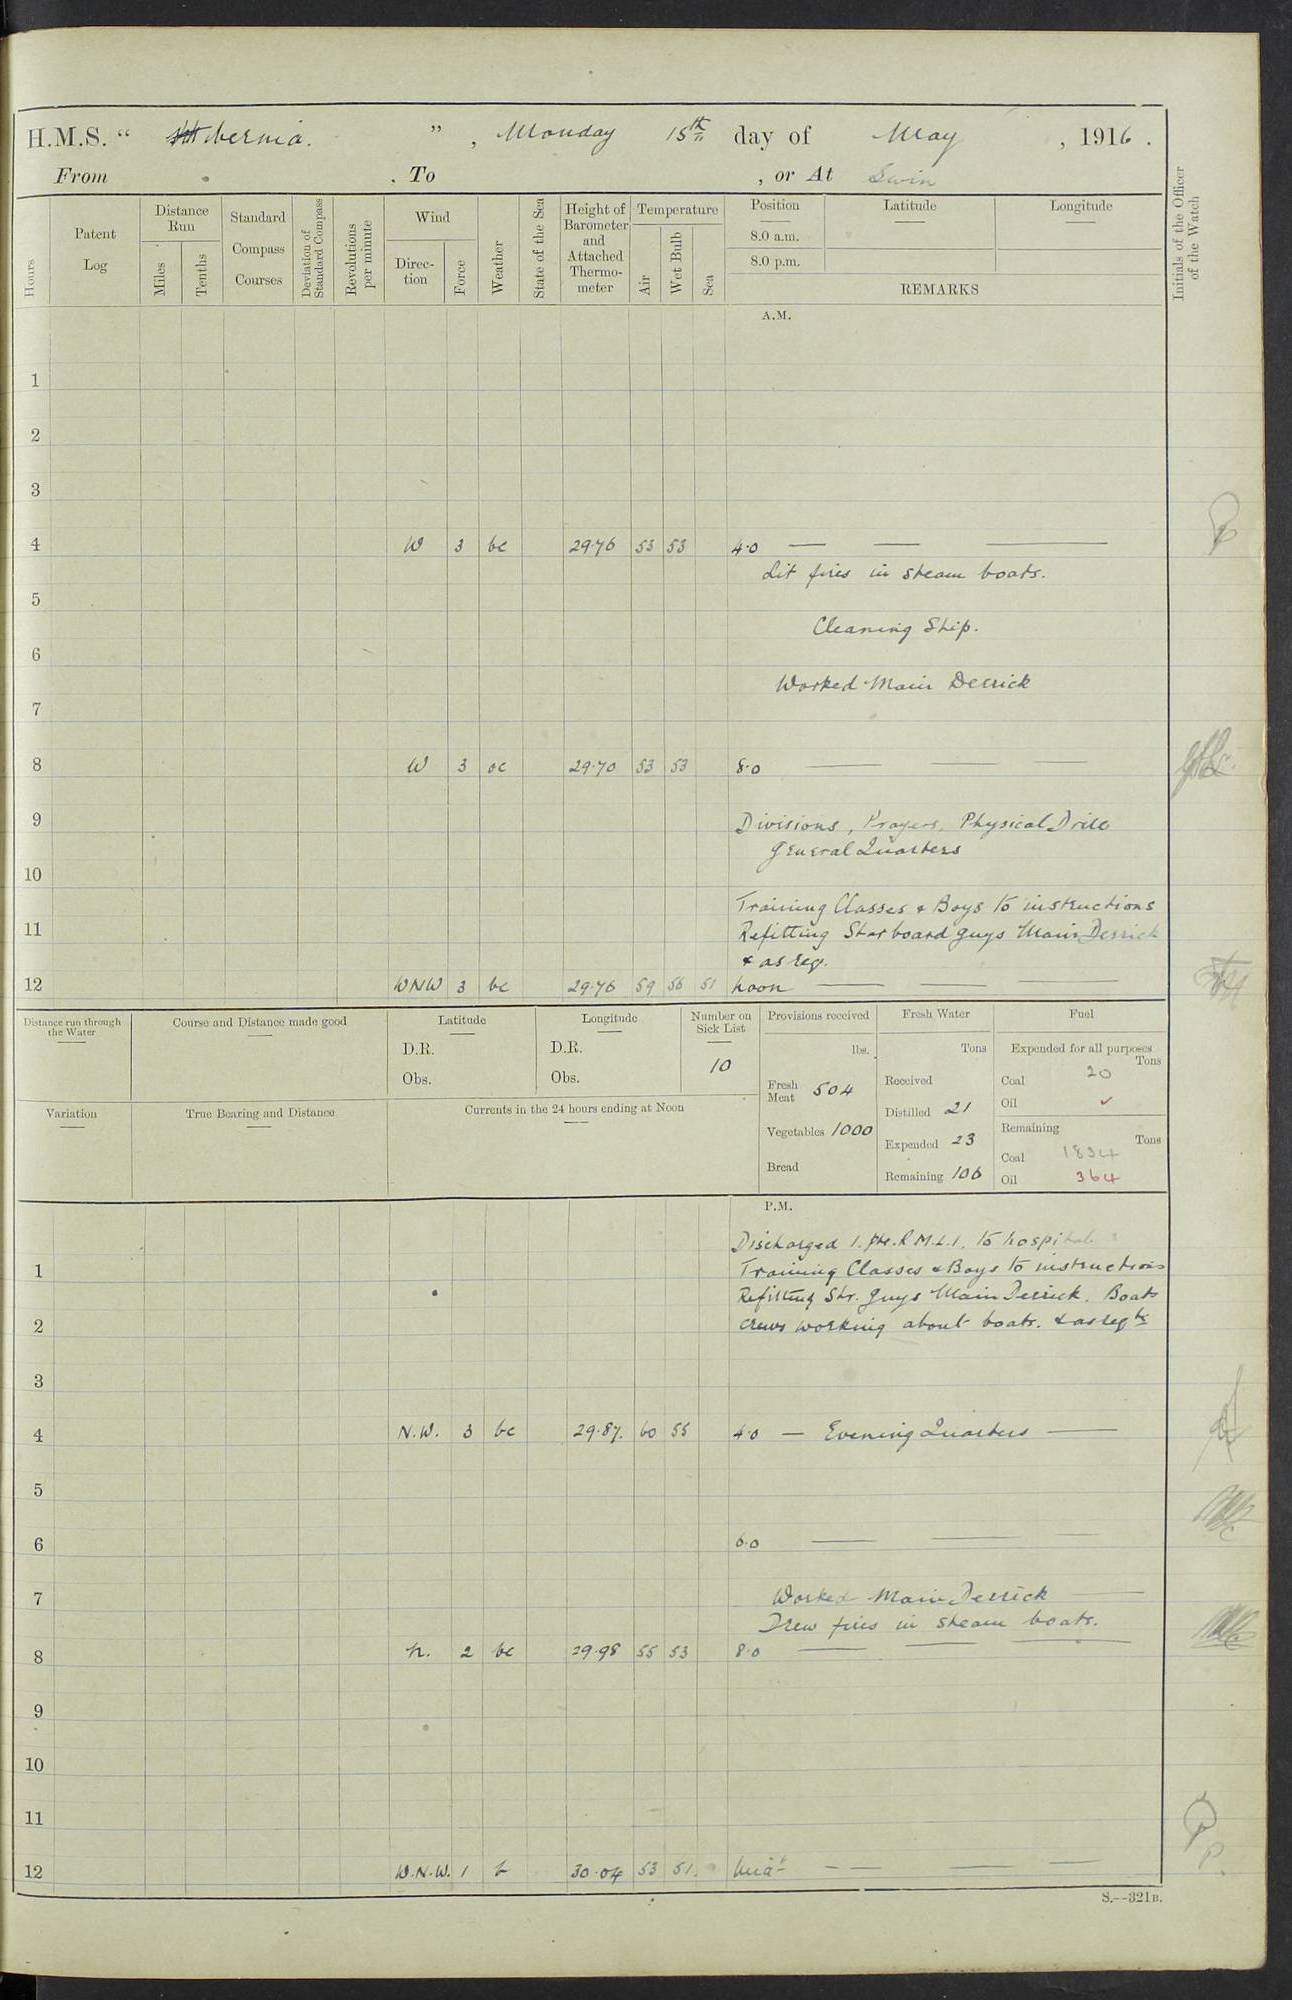 H.M.S. " Hibernia. ", Monday 15th day of May, 1916.
From . To , or At Swin
Hours
Patent Log
Distance Run
Miles
Tenths
Standard Compass Courses
Deviation of Standard Compass
Revolutions per minute
Wind
Direction
Force
Weather
State of the Sea
Height of Barometer and Attached Thermometer
Temperature
Air
Wet Bulb
Sea
Position Latitude Longitude
8.0 a.m.
8.0 p.m.
REMARKS
Initials of the Officer of the Watch
A.M.
1
2
3
4 W 3 bc 29.76 53 53 4.0
Lit fires in steam boats.
5
Cleaning Ship.
6
Worked Main Derrick
7
8 W 3 oc 29.70 53 53 8.0
9 Divisions, Prayers, Physical Drill
General Quarters
10
Training Classes & Boys to instructions
11 Refitting Starboard guys Main Derrick
& as req.
12 WNW 3 bc 29.76 59 56 51 noon
Distance run through the Water
Course and Distance made good
Latitude
D.R.
Obs.
Longitude
D.R.
Obs.
Number on Sick List
10
Provisions received
lbs.
Fresh Meat 504
Vegetables 1000
Bread
Fresh Water
Tons
Received
Distilled 21
Expended 23
Remaining 106
Fuel
Expended for all purposes
Tons
Coal 20
Oil ✓
Remaining
Tons
Coal 1834
Oil 364
Variation
True Bearing and Distance
Currents in the 24 hours ending at Noon
P.M.
Discharged 1. Pte. R.M.L.I. to hospital
1 Training Classes & Boys to instructions
Refitting Str. guys Main Derrick. Boats
2 crews working about boats. & as reqte
3
4 N.W. 3 bc 29.87. 60 55 4.0 — Evening Quarters —
5
6 6.0
7 Worked Main Derrick
Drew fires in steam boats.
8 N. 2 bc 29.98 55 53 8.0
9
10
11
12 W.N.W. 1 b 30.04 53 51. Midt
S.—321B.